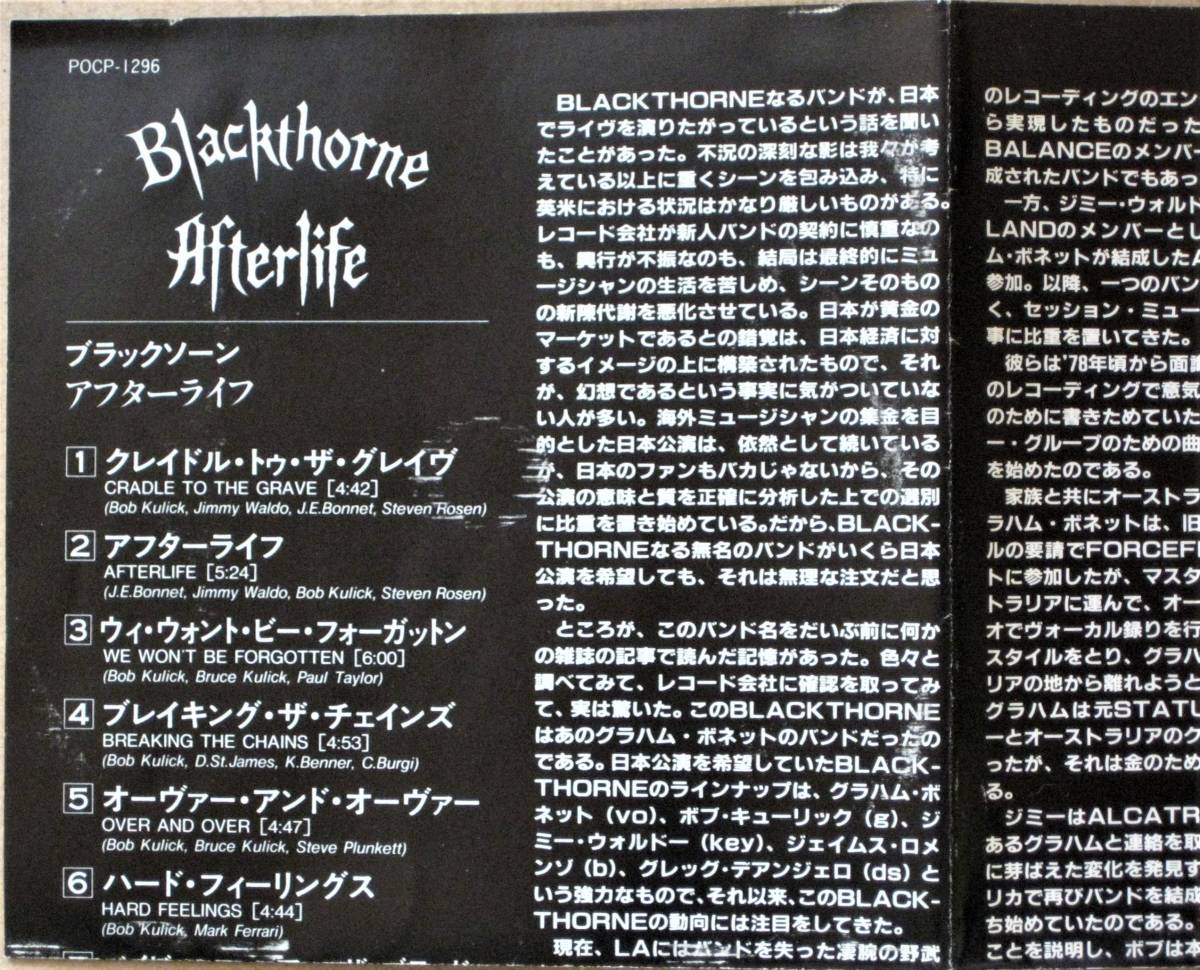 POCP-1296
Blackthorne
Afterlife
ブラックソーン
アフターライフ
1 クレイドル・トゥ・ザ・グレイヴ
CRADLE TO THE GRAVE [4:42]
(Bob Kulick, Jimmy Waldo, J.E.Bonnet, Steven Rosen)
2 アフターライフ
AFTERLIFE [5:24]
(J.E.Bonnet, Jimmy Waldo, Bob Kulick, Steven Rosen)
3 ウィ・ウォント・ビー・フォーガットン
WE WON'T BE FORGOTTEN [6:00]
(Bob Kulick, Bruce Kulick, Paul Taylor)
4 ブレイキング・ザ・チェインズ
BREAKING THE CHAINS [4:53]
(Bob Kulick, D.St.James, K.Benner, C.Burgi)
5 オーヴァー・アンド・オーヴァー
OVER AND OVER [4:47]
(Bob Kulick, Bruce Kulick, Steve Plunkett)
6 ハード・フィーリングス
HARD FEELINGS [4:44]
(Bob Kulick, Mark Ferrari)
BLACKTHORNEなるバンドが、日本
でライヴを演りたがっているという話を聞い
たことがあった。不況の深刻な影は我々が考
えている以上に重くシーンを包み込み、特に
英米における状況はかなり厳しいものがある。
レコード会社が新人バンドの契約に慎重なの
も、興行が不振なのも、結局は最終的にミュ
ージシャンの生活を苦しめ、シーンそのもの
の新陳代謝を悪化させている。日本が黄金の
マーケットであるとの錯覚は、日本経済に対
するイメージの上に構築されたもので、それ
が、幻想であるという事実に気がついていな
い人が多い。海外ミュージシャンの集金を目
的とした日本公演は、依然として続いている
が、日本のファンもバカじゃないから、その
公演の意味と質を正確に分析した上での選別
に比重を置き始めている。だから、BLACK-
THORNEなる無名のバンドがいくら日本
公演を希望しても、それは無理な注文だと思
った。
ところが、このバンド名をだいぶ前に何か
の雑誌の記事で読んだ記憶があった。色々と
調べてみて、レコード会社に確認を取ってみ
て、実は驚いた。このBLACKTHORNE
はあのグラハム・ボネットのバンドだったの
である。日本公演を希望していたBLACK-
THORNEのラインナップは、グラハム・ボ
ネット（vo）、ボブ・キューリック（g）、ジ
ミー・ウォルドー（key）、ジェイムス・ロメ
ンゾ（b）、グレッグ・デアンジェロ（ds）と
いう強力なもので、それ以来、このBLACK-
THORNEの動向には注目をしてきた。
現在、LAにはバンドを失った凄腕の野武
のレコーディングのエン
ら実現したものだった
BALANCEのメンバー
成されたバンドでもあっ
一方、ジミー・ウォルド
LANDのメンバーとし
ム・ボネットが結成したA
参加。以降、一つのバン
く、セッション・ミュー
事に比重を置いてきた。
彼らは'78年頃から面識
のレコーディングで意気
のために書きためていた
ー・グループのための曲
を始めたのである。
家族と共にオーストラ
ラハム・ボネットは、旧
ルの要請でFORCEFI
トに参加したが、マスタ
トラリアに運んで、オー
オでヴォーカル録りを行
スタイルをとり、グラハ
リアの地から離れようと
グラハムは元STATU
ーとオーストラリアのク
ったが、それは金のため
る。
ジミーはALCATR
あるグラハムと連絡を取
に芽ばえた変化を発見す
リカで再びバンドを結成
ち始めていたのである。
ことを説明し、ボブは本